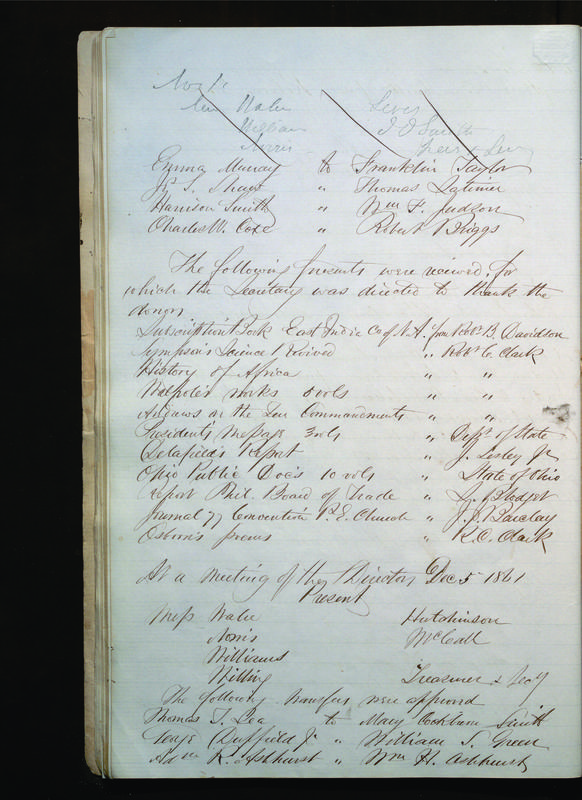 Wahn Lewis
William J J Smith
Norris
Emma Murray to Franklin Taylor
" Thomas Latimer
Harrison Smith " Wm F. Judson
Charles M. Coxe " Robert Briggs
The following presents were received, for
which the Secretary was directed to thank the
donors
Subscription Book East India Co of N.A. from Robt B. Davidson
Sympson's Science Revived " Robt C. Clark
History of Africa " "
Walpole's works vols " "
Andrews on the Ten Commandments " "
President's Message 3 vols " Dept of State
Delafield's Report " J. Lesley Jr
Ohio Public Doc's 10 vols " State of Ohio
Report Phil. Board of Trade " L. Blodget
Journal 77 Convention P.E. Church " J. J. Barclay
Osborn's poems " R. C. Clark
At a meeting of the Directors Dec 5 1861
Present
Mess Wahn Hutchinson
Norris McCall
Williams
Willing Treasurer & Secy
The following transfers were approved
Thomas T. Lea to Mary Cockburn Smith
Duffield Jr " William S. Green
Adm R. Ashhurst " Wm H. Ashhurst